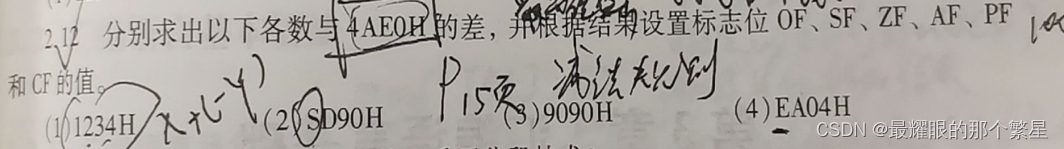 2.12 分别求出以下各数与 4AE0H 的差，并根据结果设置标志位 OF、SF、ZF、AF、PF
和 CF 的值。
P15页 减法规则
(1) 1234H x+(-y) (2) SD90H (3) 9090H (4) EA04H
CSDN @最耀眼的那个繁星